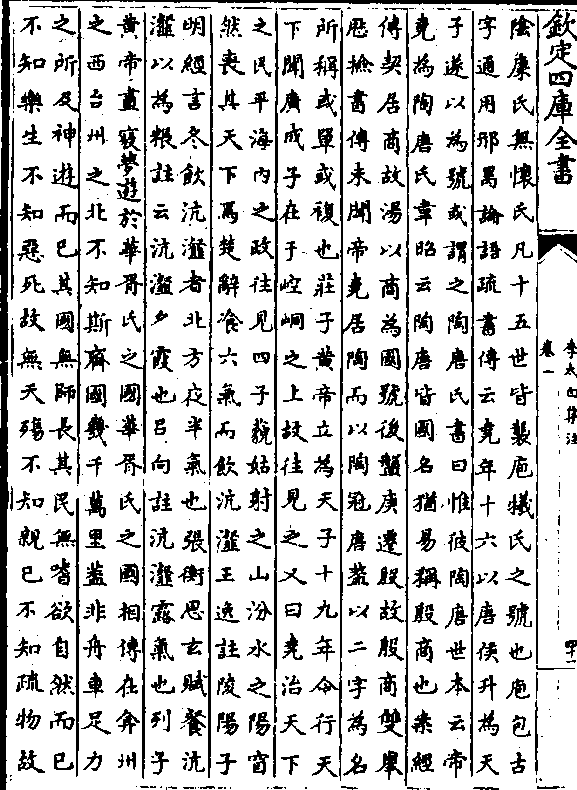 欽定四庫全書
李太白集注
卷一
陰康氏無懷氏凡十五世皆襲庖犧氏之號也庖包古
字通用邢昺論語疏書傳云堯年十六以唐侯升為天
子遂以為號或謂之陶唐氏書曰惟彼陶唐世本云帝
堯為陶唐氏韋昭云陶唐皆國名猶易稱殷商也案經
傳契居商故湯以商為國號後盤庚遷殷故殷商雙舉
歴檢書傳未聞帝堯居陶而以陶冠唐葢以二字為名
所稱或單或複也莊子黄帝立為天子十九年令行天
下聞廣成子在于崆峒之上故往見之又曰堯治天下
之民平海内之政往見四子藐姑射之山汾水之陽窅
然喪其天下焉楚辭飡六氣而飲沆瀣王逸註陵陽子
明經言冬飲沆瀣者北方夜半氣也張衡思玄賦餐沆
瀣以為粻註云沆瀣夕霞也吕向註沆瀣露氣也列子
黄帝晝寢夢遊於華胥氏之國華胥氏之國相傳在弇州
之西台州之北不知斯齊國幾千萬里葢非舟車足力
之所及神遊而已其國無師長其民無嗜欲自然而已
不知樂生不知惡死故無夭殤不知親已不知疏物故